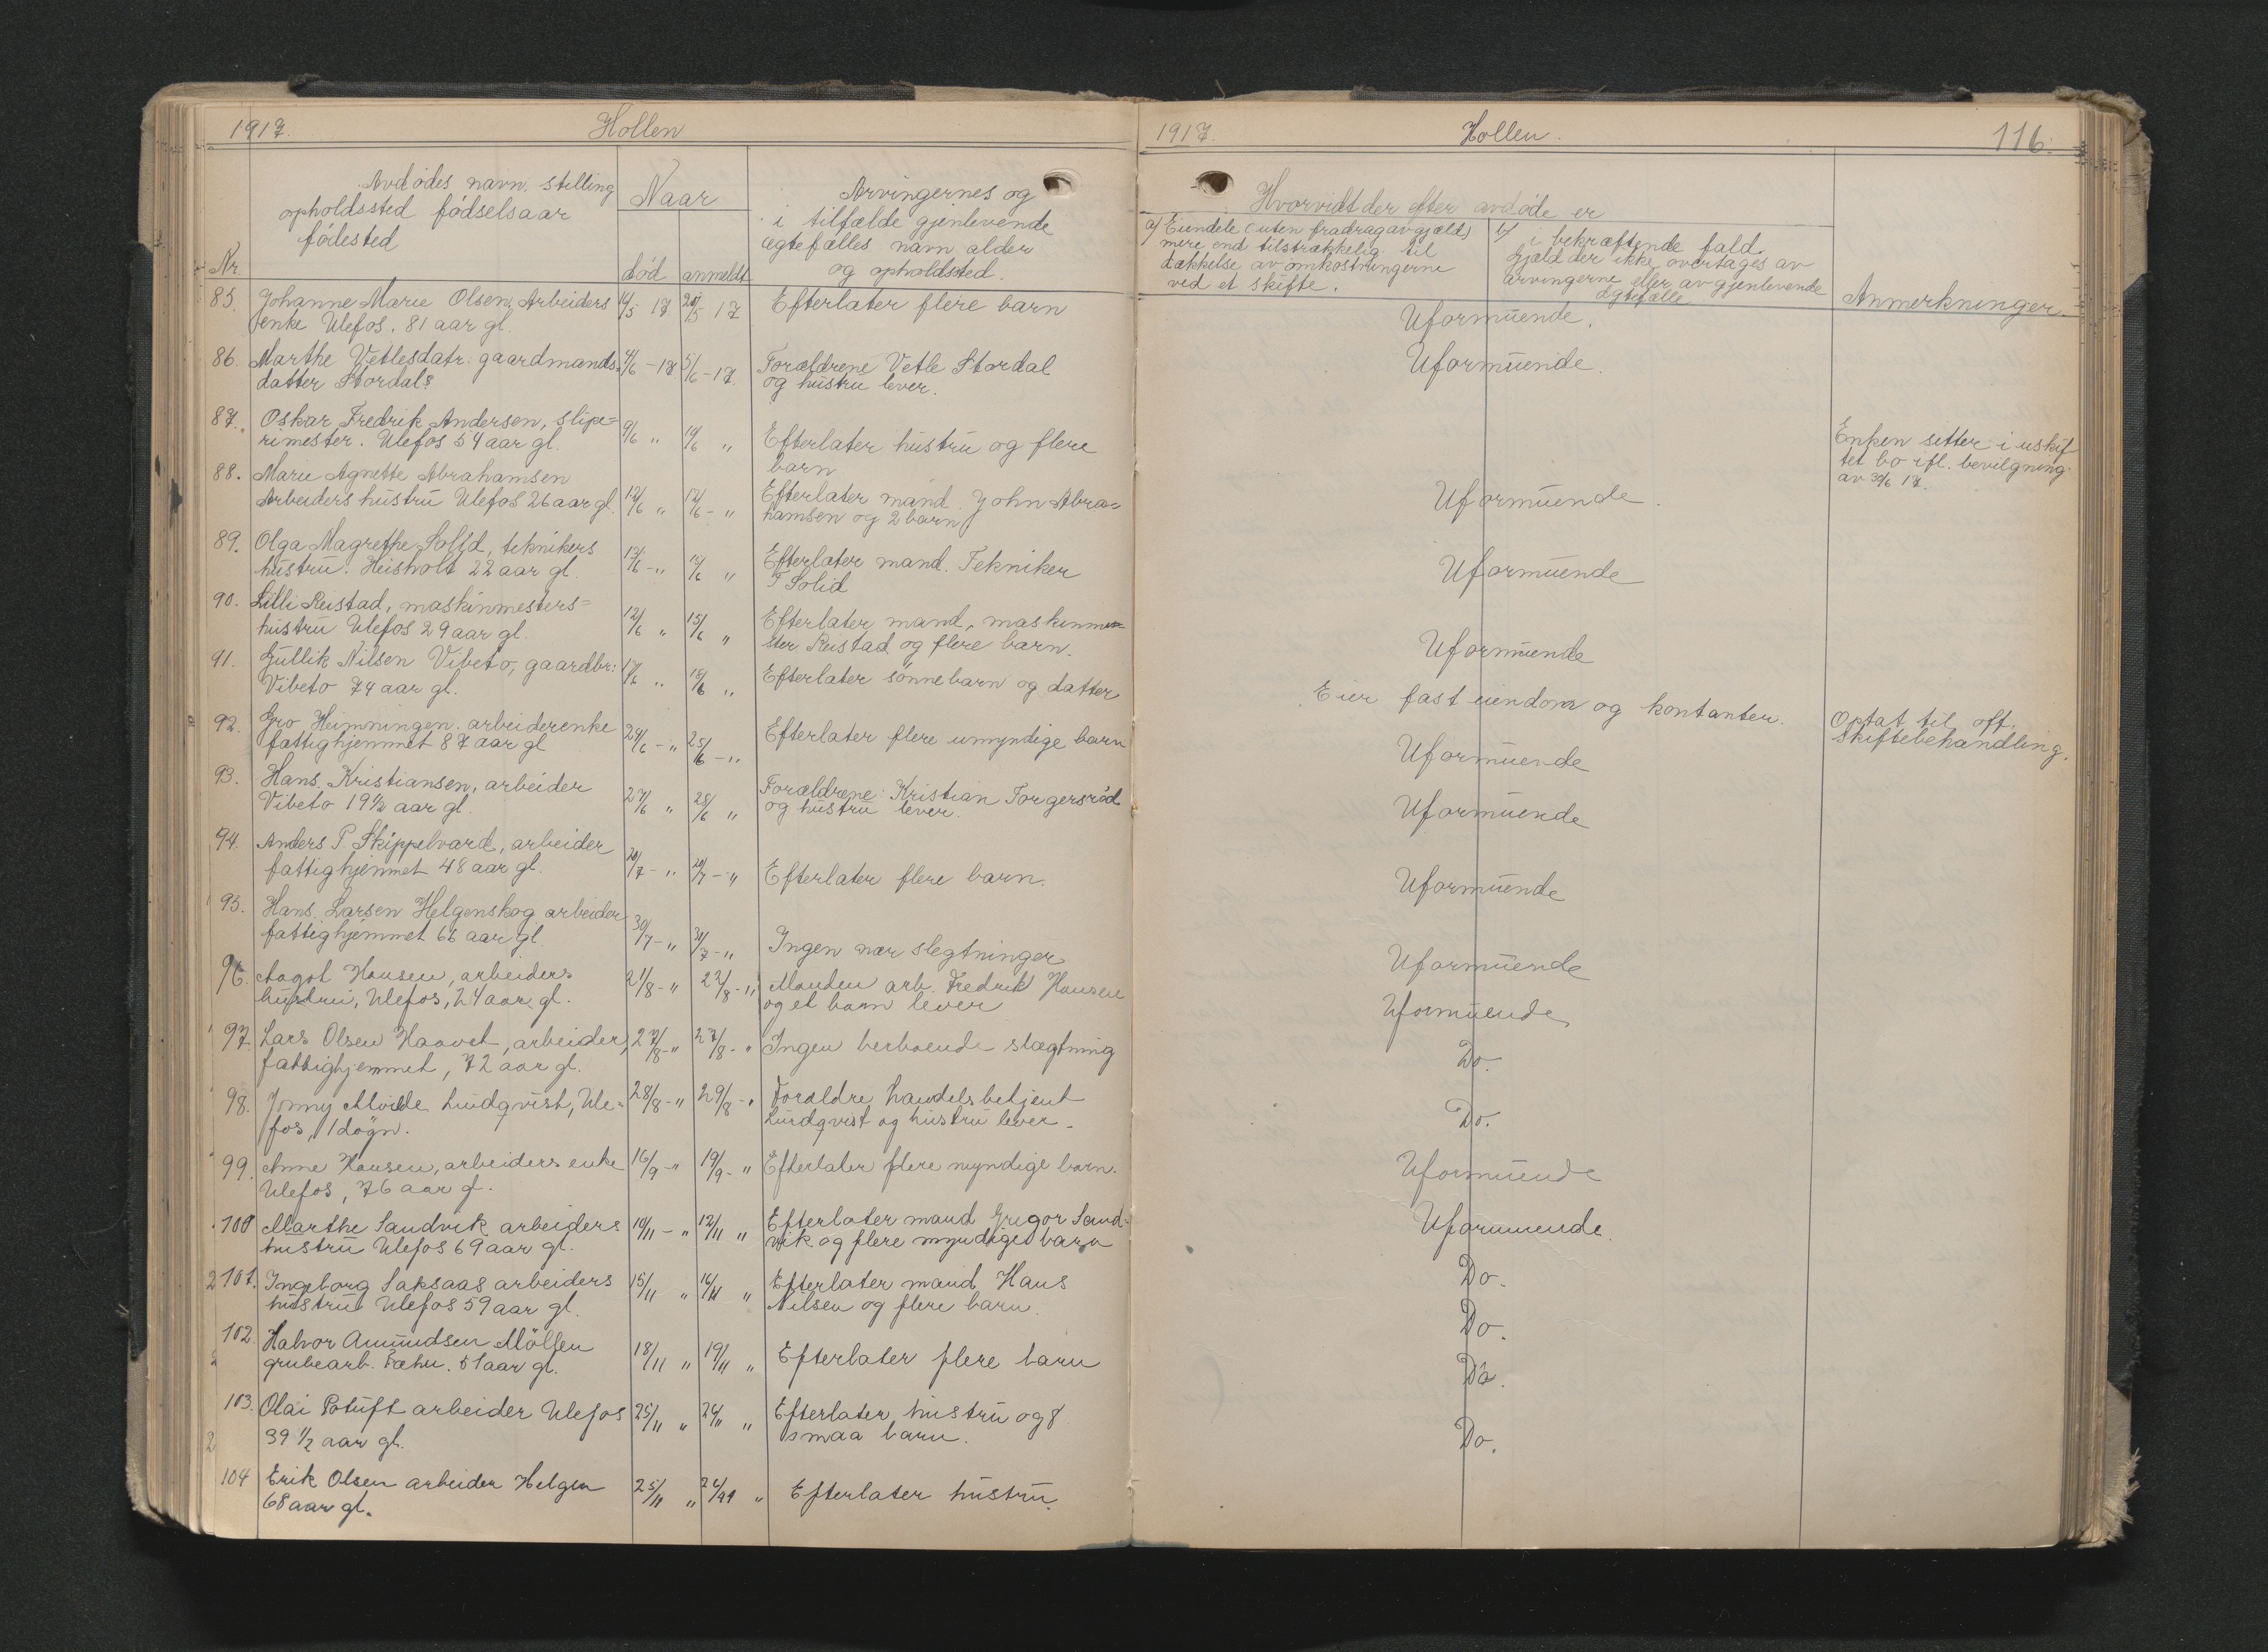 1917. Hollen
Avdødes navn. stilling
opholdssted fødselsaar
fødested
Nr.
Naar
død anmeldt
Arvingernes og
i tilfælde gjenlevende
ægtefælles navn alder
og opholdsted.
85. Johanne Marie Olsen, Arbeiders 5 17 5 17 Efterlater flere barn
enke Ulefos. 81 aar gl.
86. Marthe Vetlesdatr. gaardmands- 4/6 - 17 5/6 - 17. Forældrene Vetle Stordal
datter Stordal og hustru lever.
87. Oskar Fredrik Andersen, slipe=
rimester. Ulefos 54 aar gl. 9/6 " /6 " Efterlater hustru og flere
barn
88. Marie Agnette Abrahamsen
Arbeiders hustru Ulefos 26 aar gl. 12/6 " 12/6 - " Efterlater mand John Abra=
hamsen og 2 barn
89. Olga Magrethe Solid, teknikers 13/6 - " 15/6 " Efterlater mand. Tekniker
hustru. Heisholt 22 aar gl. T Solid
90. Lilli Reistad, maskinmesters=
hustru Ulefos 29 aar gl. 12/6 " 15/6 " Efterlater mand, maskinme=
ster Reistad og flere barn.
91. Gullik Nilsen Vibeto, gaardbr: 17/6 " 18/6 " Efterlater sønnebarn og datter
Vibeto 74 aar gl.
92. Gro Heimningen. arbeiderenke 24/6 - " 25/6 - " Efterlater flere umyndige barn
fattighjemmet 87 aar gl
93. Hans Kristiansen, arbeider
Vibeto 19 1/2 aar gl. 27/6 " 28/6 " Forældrene: Kristian Torgersrød
og hustru lever.
94. Anders P Skippelvard, arbeider
fattighjemmet 48 aar gl. 20/7 - " 20/7 - " Efterlater flere barn.
95. Hans Larsen Helgenskog arbeider
fattighjemmet 66 aar gl. 30/7 - " 31/7 - " Ingen nær slegtninger
96. Aagot Hansen, arbeiders 21/8 - " 22/8 - " Manden arb. Fredrik Hansen
hustru, Ulefos, 24 aar gl. og et barn lever
97. Lars Olsen Haavet, arbeider, 27/8 - " 27/8 - " Ingen herboende slægtning
fattighjemmet, 72 aar gl.
98. Jonny Alvilde Lindqvist, Ule= 28/8 - " 29/8 - " Forældre handelsbetjent
fos, 1 døgn. Lindqvist og hustru lever.
99. Anne Hansen, arbeiders enke 16/9 - " 19/9 - " Efterlater flere myndige barn.
Ulefos, 76 aar g.
100 Marthe Sandvik arbeiders 10/11 - " 12/11 " Efterlater mand Gregor Sand-
hustru Ulefos 69 aar gl. vik og flere myndige barn
101. Ingeborg Saksaas arbeiders 15/11 " 16/11 " Efterlater mand Hans
hustru Ulefos 59 aar gl. Nilsen og flere barn.
102. Halvor Amundsen Møllen
grubearb. Fæhn. 51 aar gl. 18/11 " 19/11 " Efterlater flere barn
103. Olai Patuft arbeider Ulefos 25/11 " 26/11 " Efterlater hustru og 8
39 1/2 aar gl. smaa barn.
104 Erik Olsen arbeider Helgen 25/11 " 26/11 " Efterlater hustru.
68 aar gl.
1917. Hollen. 116.
Hvorvidt der efter avdøde er
a) Eiendele (uten fradrag av gjæld)
mere end tilstrækkelig til
dækkelse av omkostningerne
ved et skifte.
b) i bekræftende fald.
Gjæld der ikke overtages av
arvingerne eller av gjenlevende
ægtefælle
Anmerkninger.
Uformuende.
Uformuende.
Enken sitter i uskif
tet bo ifl. bevilgning
av 30/6 17.
Uformuende.
Uformuende
Uformuende
Eier fast eiendom og kontanter.
Optat til off.
Skiftebehandling.
Uformuende
Uformuende
Uformuende
Uformuende
Uformuende
Do.
Do.
Uformuende
Uformuende.
Do.
Do.
Do.
Do.